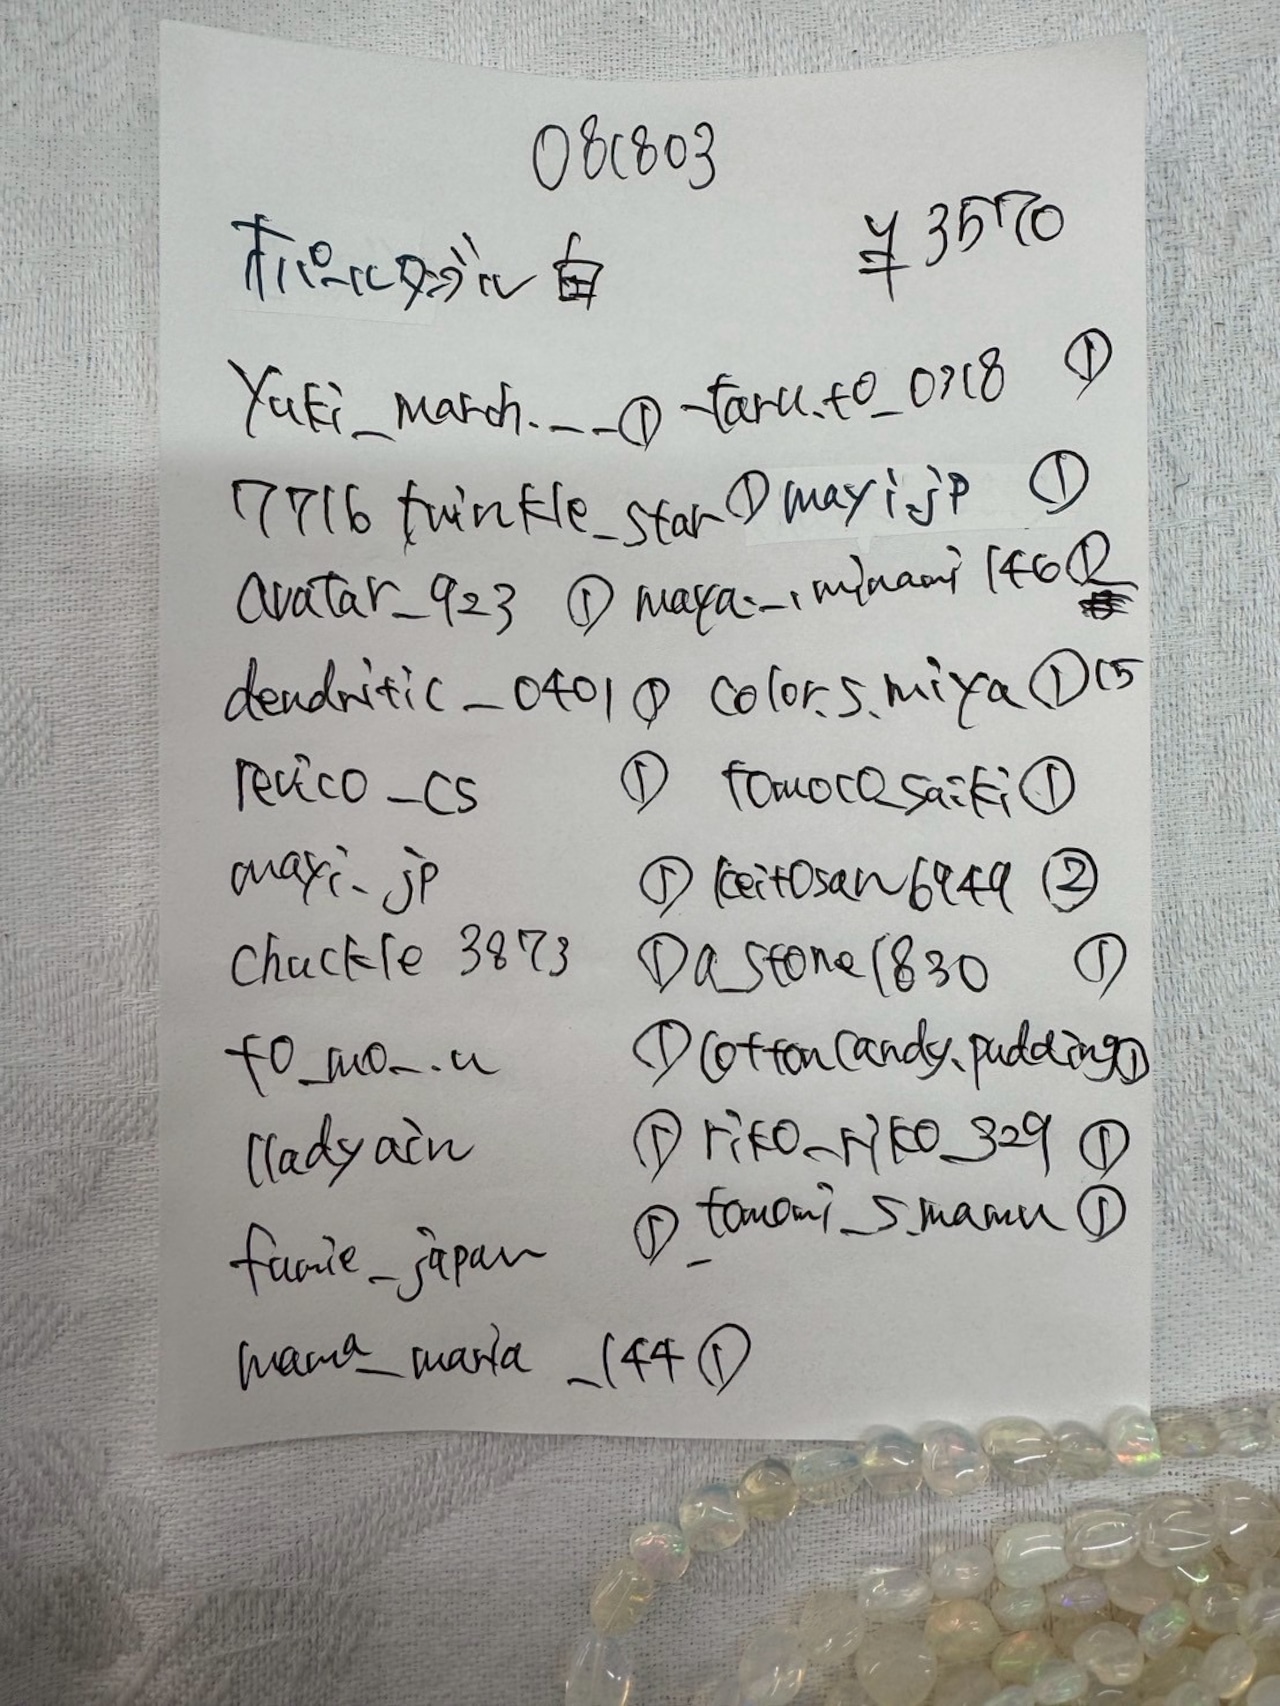 081803
オパールタンブル 白 ¥3570
Yuki_march.___① taru.to_0318 ①
7716twinkle_star① mayi.jp ①
avatar_923 ① maya._.minami146①
dendritic_0401① color.s.miya①15
revico_cs ① tomoco_saiki①
mayi.jp ① keitosan6949②
chuckle3873 ① a_stone1830 ①
to_mo_.u ① cottoncandy.pudding①
lladyain ① riko_riko_329①
fumie_japan ① _tomomi_s.mamu①
mama_maria_144①